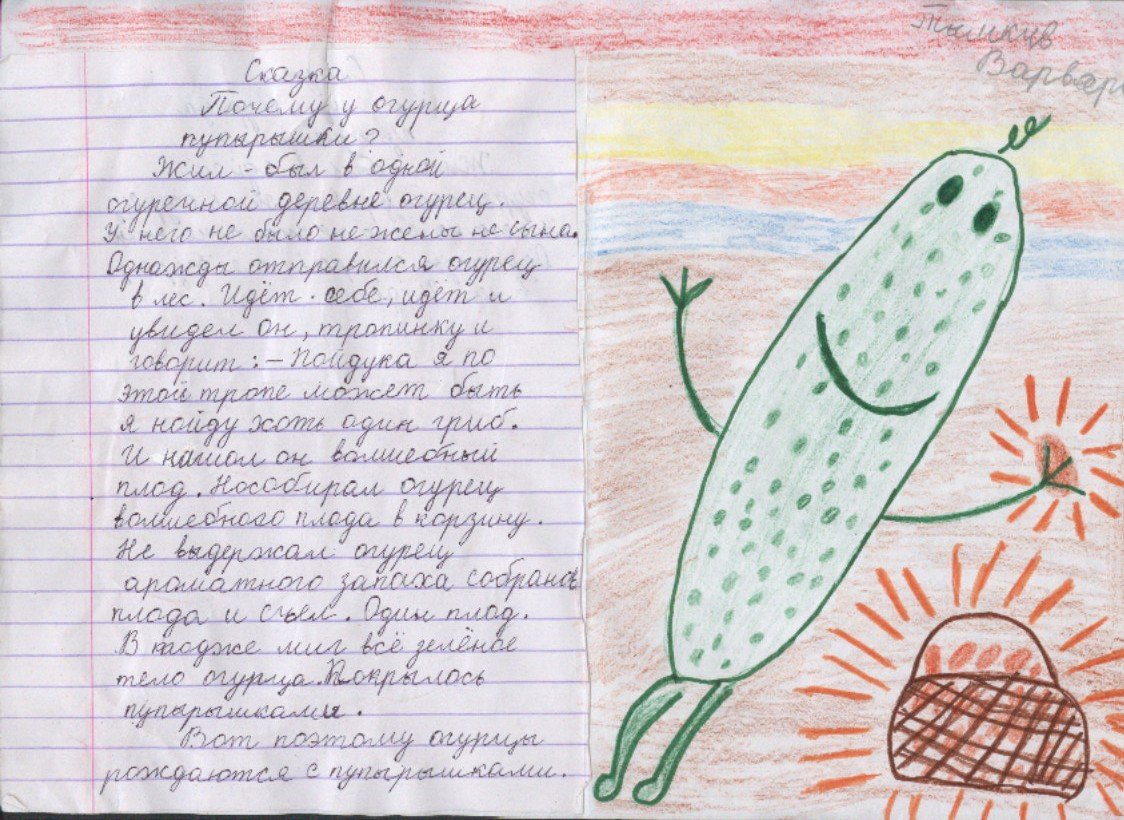 Тымкив
Варвара
Сказка
Почему у огурца
пупырышки?
Жил - был в одной
огуречной деревне огурец.
У него не было не жены не сына.
Однажды отправился огурец
в лес. Идёт себе, идёт и
увидел он, тропинку и
говорит: - Пойдука я по
этой тропе может быть
я нойду хоть один гриб.
И нашол он волшебный
плод. Нособирал огурец
волшебного плода в корзину.
Не выдержал огурец
ароматного запаха
плода и съел. Один плод.
В тодже миг всё зелёное
тело огурца. Покрылось
пупырышками.
Вот поэтому огурцы
рождаются с пупырышками.